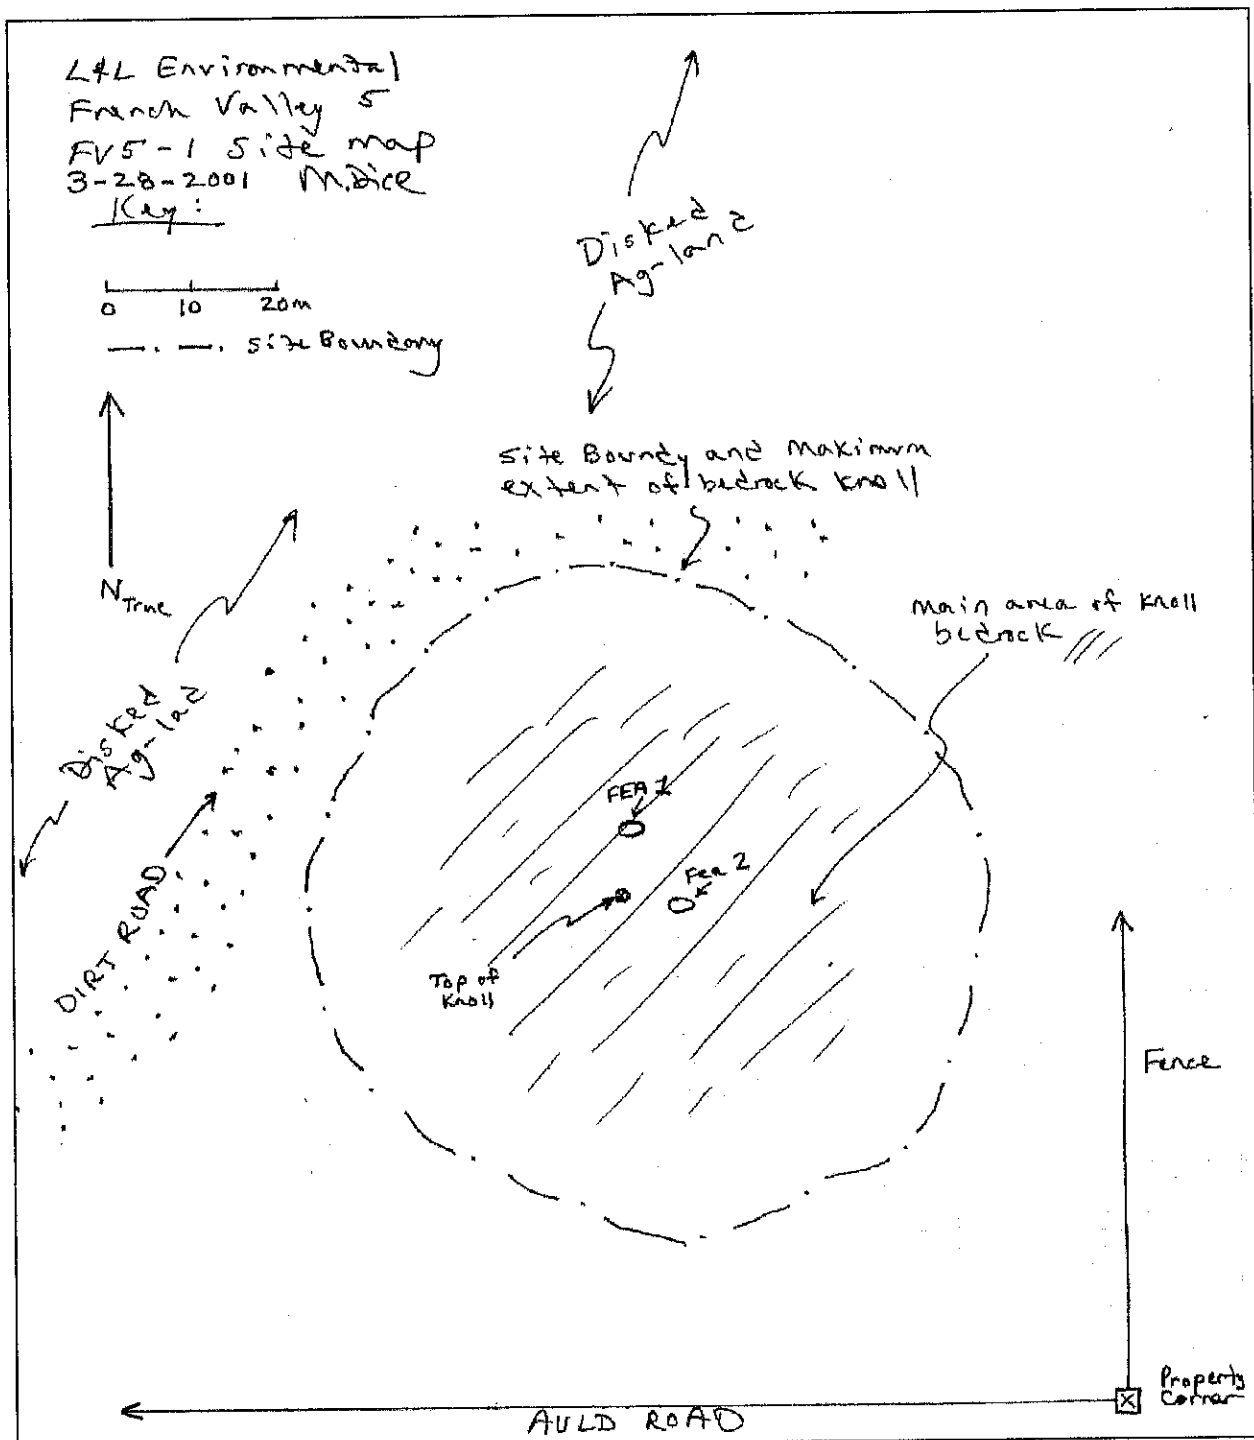 L&L Environmental
French Valley 5
FV5-1 Site map
3-28-2001 M.Dice
Key:
0 10 20m
site Boundary
Disked
Ag-land
N True
Site Boundy and Maximum
extent of bedrock knoll
main area of knoll
bedrock
Disked
Ag-lad
DIRT ROAD
FEA 1
Fea 2
Top of
Knoll
Fence
Property
Corner
AULD ROAD